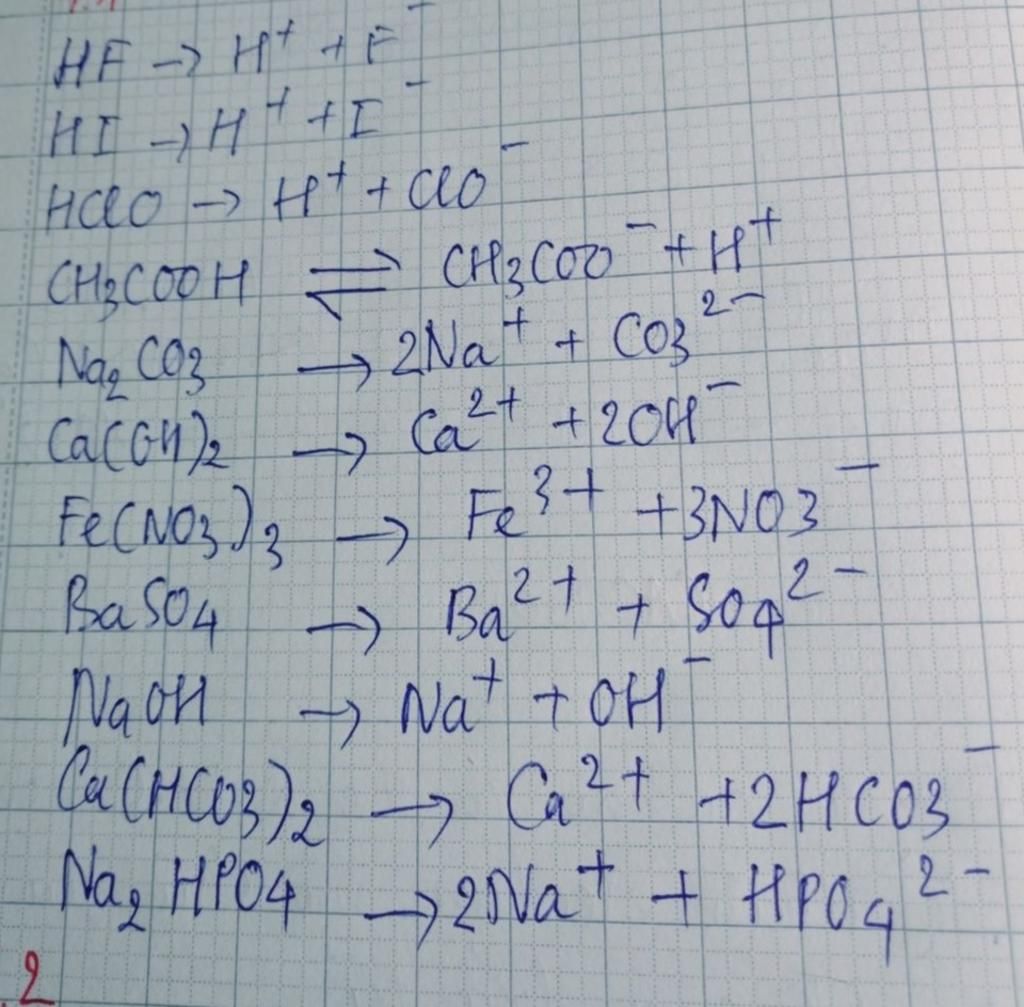 HF → H⁺ + F⁻
HI → H⁺ + I⁻
HClO → H⁺ + ClO⁻
CH₃COOH ⇌ CH₃COO⁻ + H⁺
Na₂CO₃ → 2Na⁺ + CO₃²⁻
Ca(OH)₂ → Ca²⁺ + 2OH⁻
Fe(NO₃)₃ → Fe³⁺ + 3NO₃⁻
BaSO₄ → Ba²⁺ + SO₄²⁻
NaOH → Na⁺ + OH⁻
Ca(HCO₃)₂ → Ca²⁺ + 2HCO₃⁻
Na₂HPO₄ → 2Na⁺ + HPO₄²⁻
2